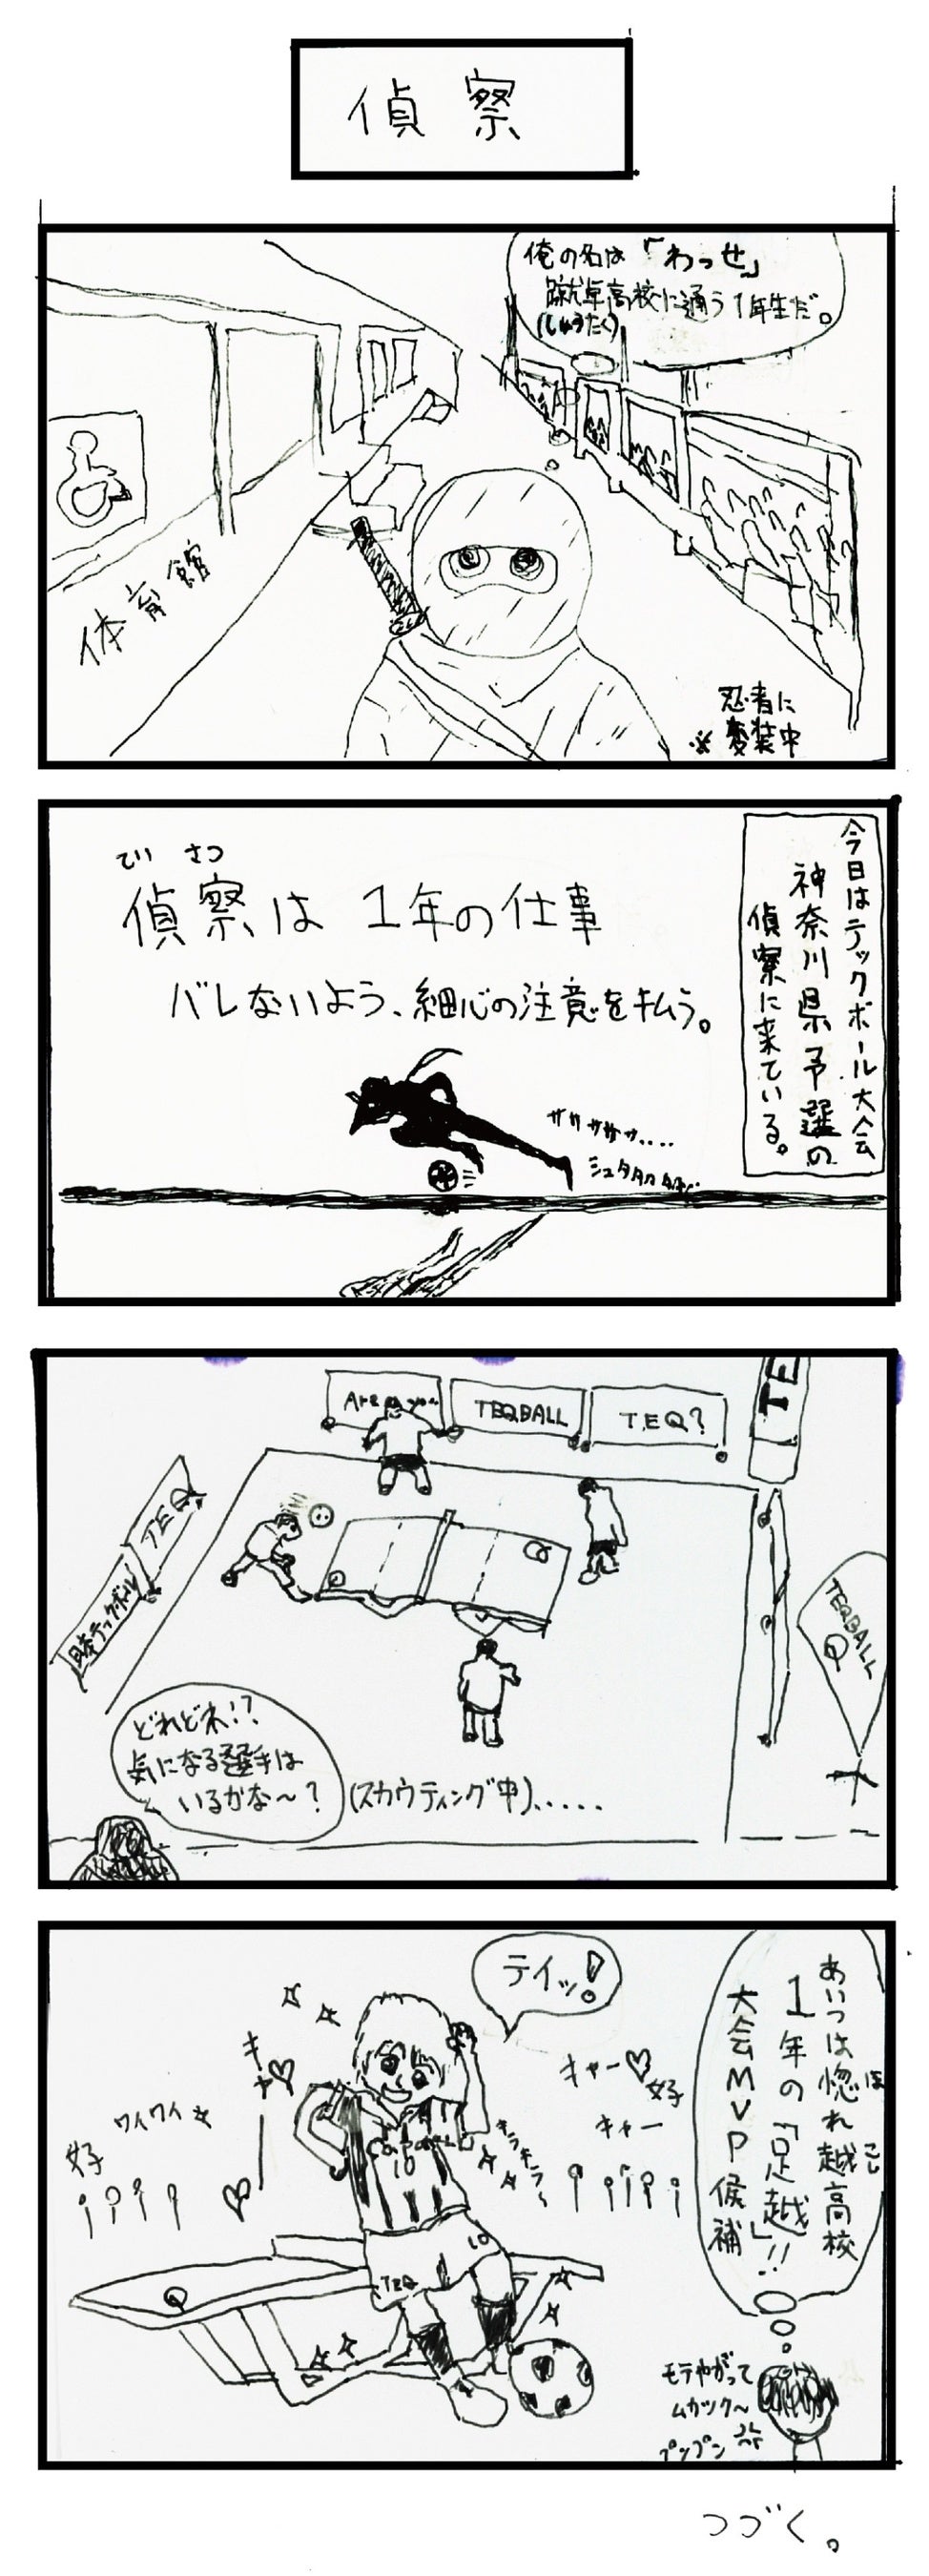 偵察
俺の名は「わっせ」
蹴卓高校に通う1年生だ。
(しゅうたく)
体育館
忍者に
※変装中
今日はテックボール大会
神奈川県予選の
偵察に来ている。
ていさつ
偵察は1年の仕事
バレないよう、細心の注意を払う。
ササササッ....
シュタタタ
Are you
TEQBALL
TEQ?
TE
TEQ
日本テックボール
TEQBALL
Q
Q
どれどれ!?
気になる選手は
いるかな〜?
(スカウティング中).....
ほ
こし
あいつは惚れ越高校
1年の「足越」!!
大会MVP候補
テイッ!
キャー♡
キャー♡
好
キャー
ワイワイ
好
キラキラ〜
10
10
TEQ
Q
モテやがって
ムカツク〜
プンプン
つづく。